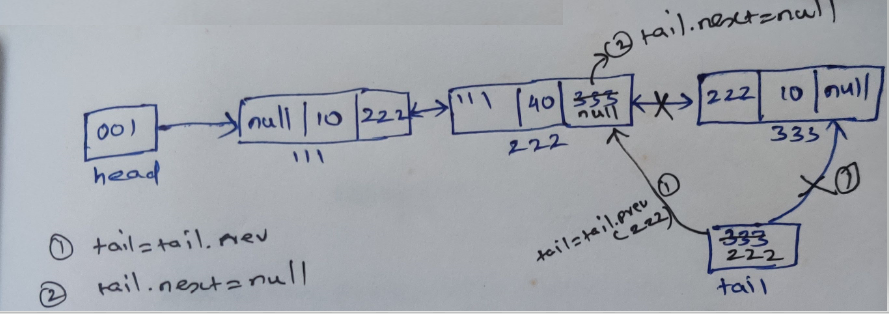 ② tail.next=null
001
head
null 10 222
111
111 40 333 null
222
222 10 null
333
①
①
tail=tail.prev
(222)
333
222
tail
① tail=tail.prev
② tail.next=null